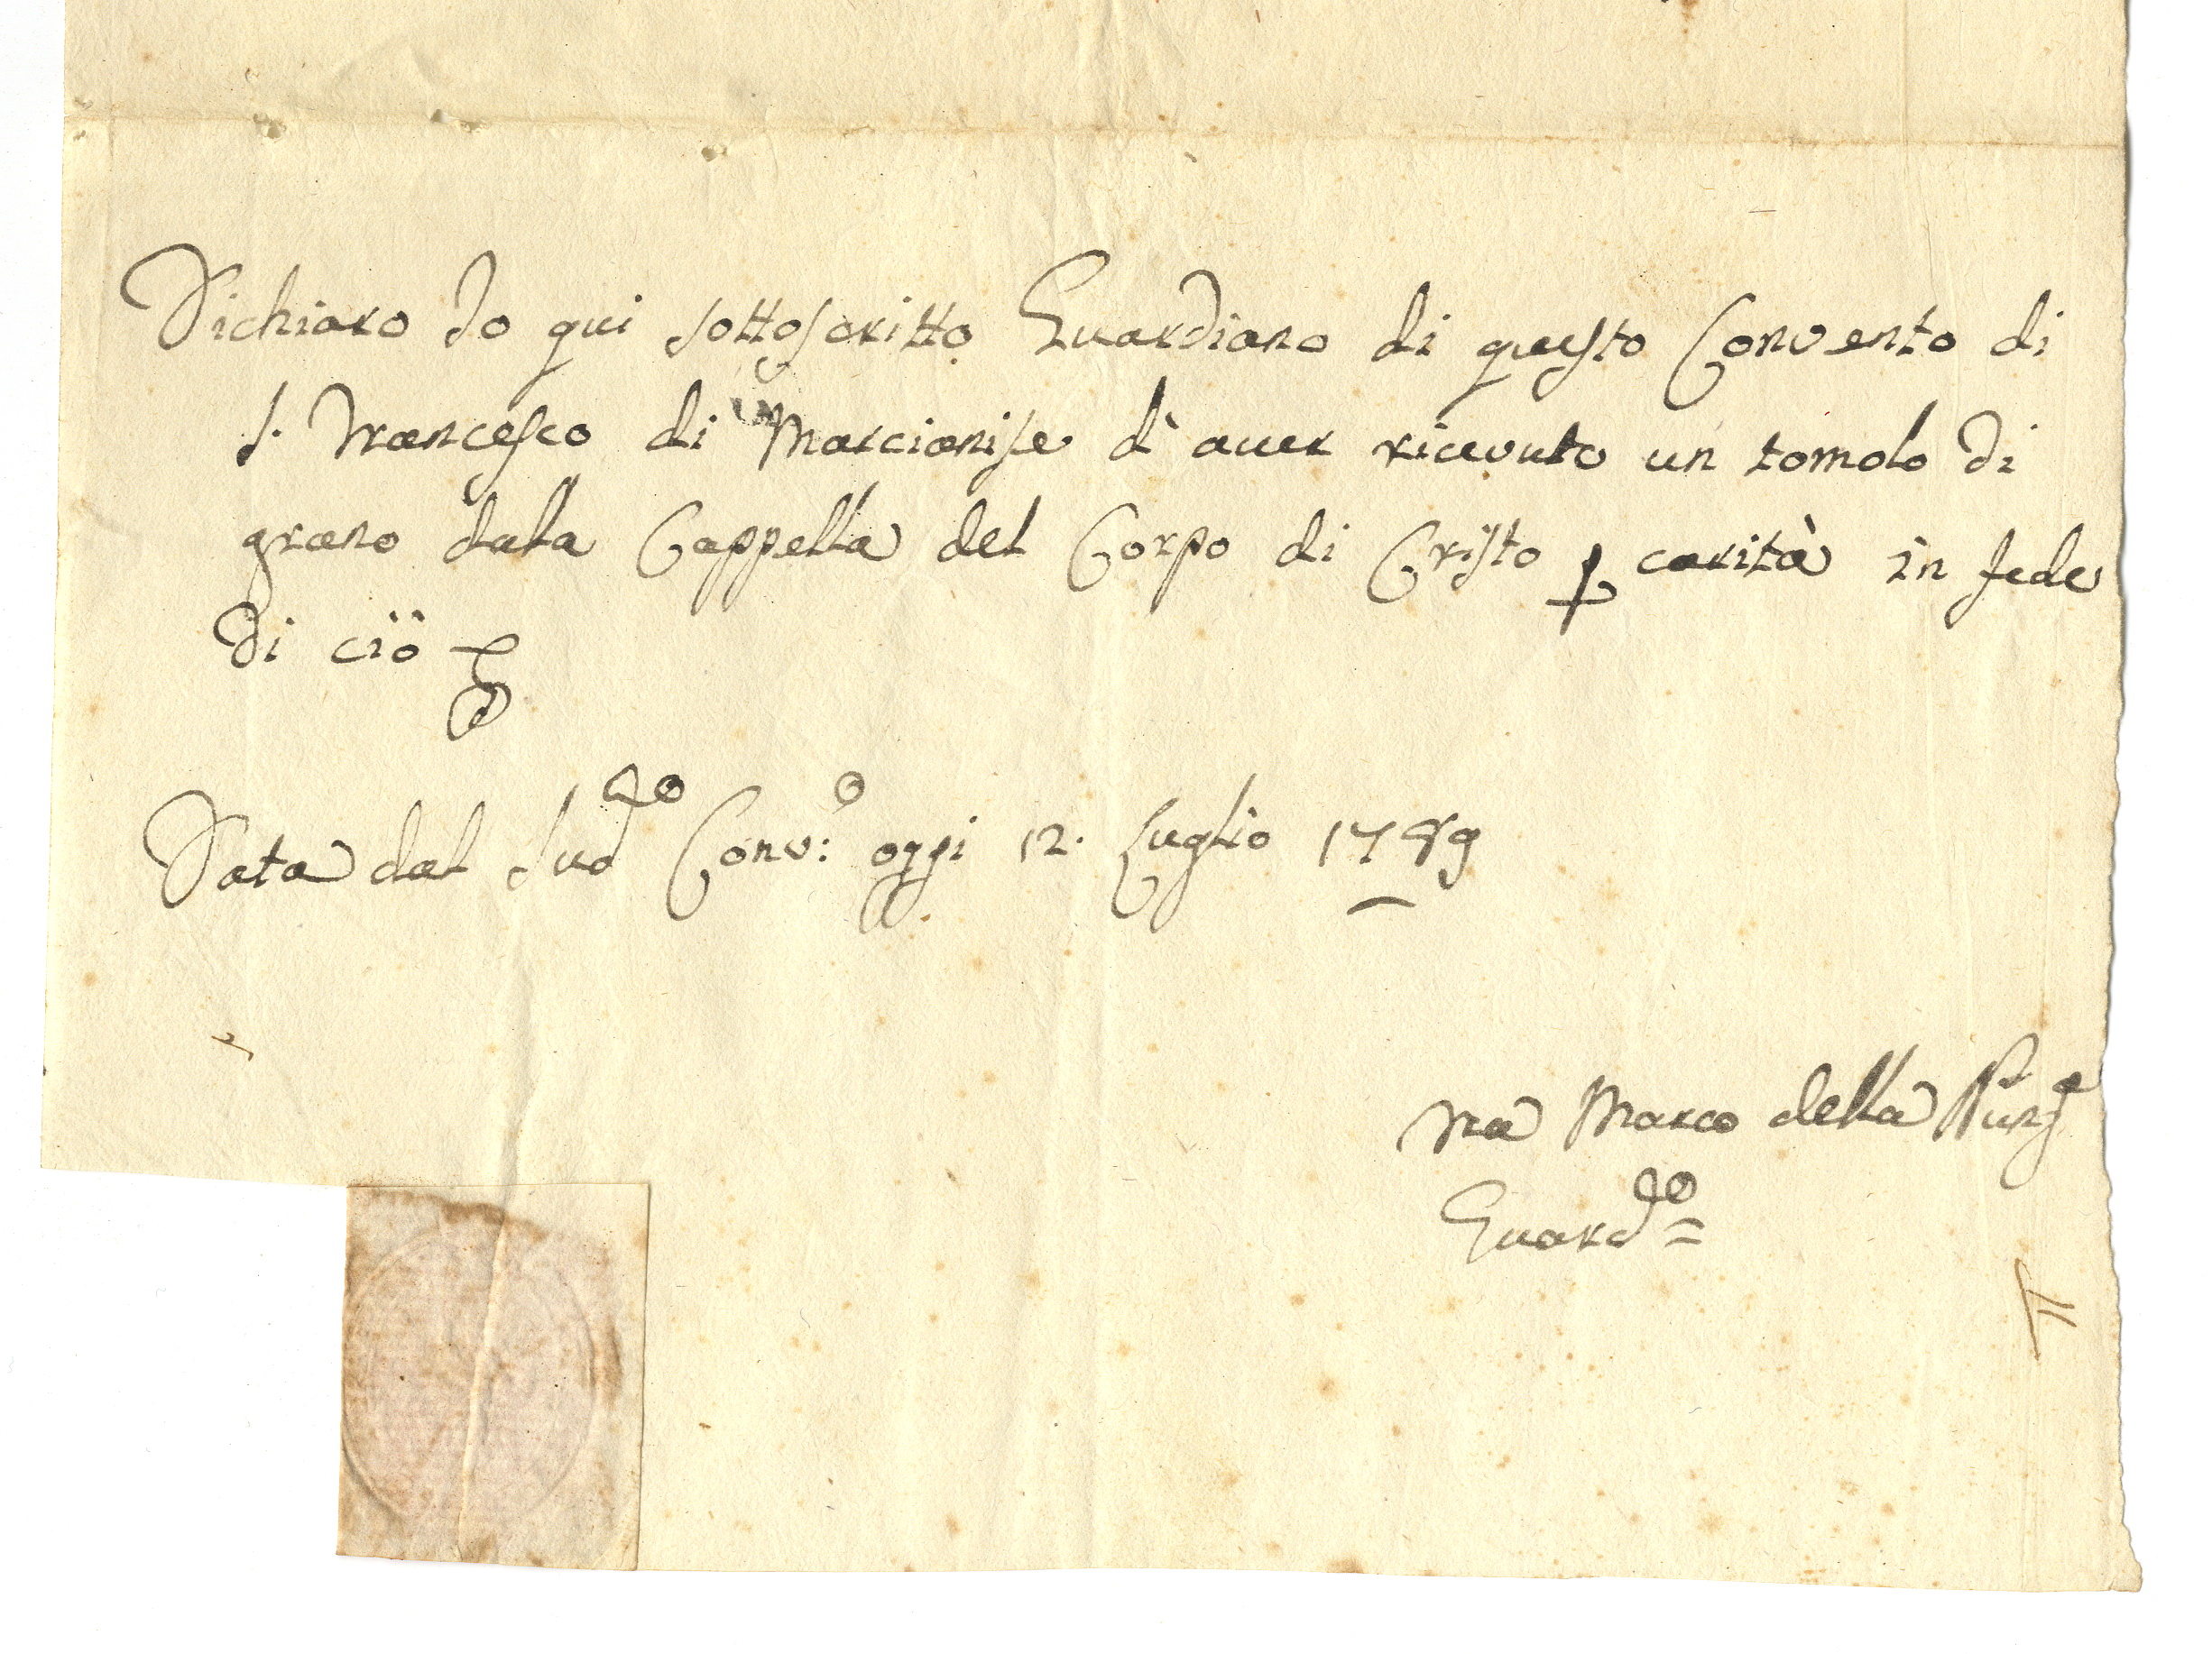 Dichiaro Io qui sottoscritto Guardiano di questo Convento di
S. Francesco di Marcianise d' aver ricevuto un tomolo di
grano dala Cappella del Corpo di Cristo p carità in fede
di ciò
Data dal Sud.do Conv:o oggi 12. Luglio 1789
Fra Marco della
Guard.o